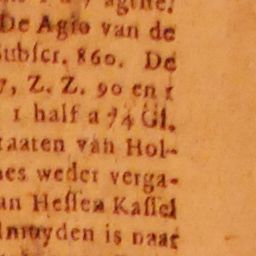 De Agio van de
ubſcr. 860. De
7, Z. Z. 90 en 1
1 half a 74 Gl.
taaten van Hol-
es weder verga-
an Heſſen Kaſſel
muyden is naar